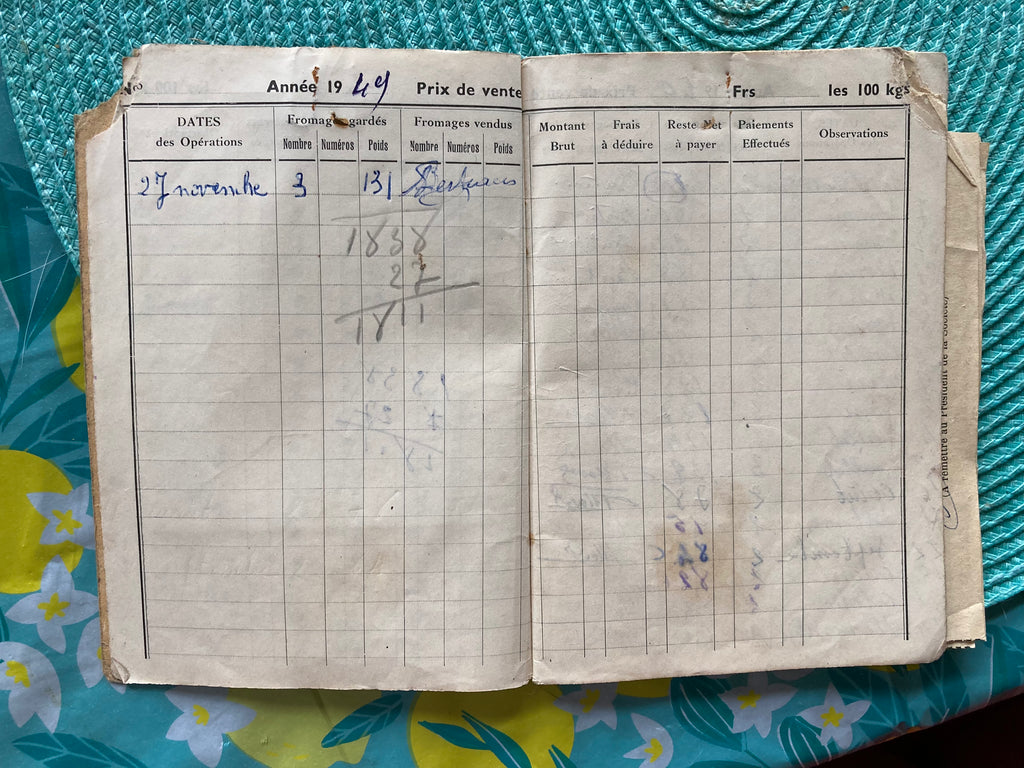 Année 1949 Prix de vente Frs les 100 kgs
DATES des Opérations
Fromages gardés
Nombre Numéros Poids
Fromages vendus
Nombre Numéros Poids
Montant Brut
Frais à déduire
Reste Net à payer
Paiements Effectués
Observations
27 novembre 3 131
1838
27
1811
(A remettre au Président de la Société)